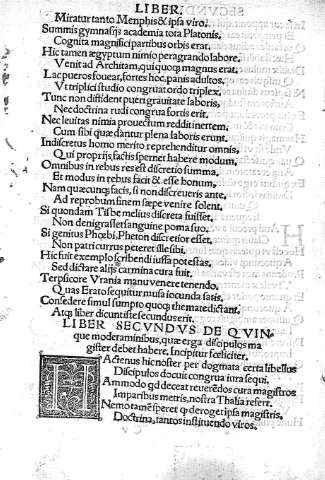 LIBER.
Miratur tanto Menphis & ipsa viro.
Summis gymnasijs academia tota Platonis,
Cognita magnificis partibus orbis erat.
Hic tamen ægyptum nimio peragrando labore,
Venit ad Architam, qui quoq; magnus erat.
Lac pueros foueat, fortes hoc panis adultos.
Vt triplici studio congruat ordo triplex,
Tunc non distident puerg grauitate laboris,
Nec doctrina rudi congrua fortis erit.
Nec leuitas nimia prouectum reddit inertem,
Cum sibi quæ dantur plena laboris erunt.
Indiscretus homo merito reprehenditur omnis,
Qui proprijs factis spernet habere modum,
Omnibus in rebus res est discretio summa,
Et modus in rebus facit & esse bonum,
Nam quæcunq; facis, si non discreueris ante,
Ad reprobum finem sæpe venire solent,
Si quondam Tisbe melius discreta fuisset,
Non denigrasset sanguine poma suo.
Si genitus Phœbi Pheton discretior esset,
Non patri currus peteret ille sibi,
Hic fuit exemplo scribendi iussa potestas,
Sed dictare alijs carmina cura fuit.
Terpsicore Vrania manu venere tenendo,
Quas Erato sequitur musa iocunda satis,
Consedere simul sumpto quoq; themate dictant.
Atq; liber dicuntiste secundus erit.
LIBER SECVNDVS DE QVIN-
que moderaminibus, quæ erga discipulos ma
gister debet habere, Incipitur fœliciter.
HActenus hic noster per dogmata certa libellus
Discipulos docuit congrua iura sequi,
Ammodo qd deceat reuerẽdos cura magistros
Imparibus metris, nostra Thalia refert.
Nemo tamẽ speret qp deroget ipsa magistris,
Doctrina, tantos instituendo viros.